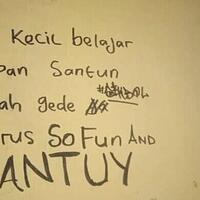 Kecil belajar
pan Santun
ah gede
rus So Fun AND
ANTUY